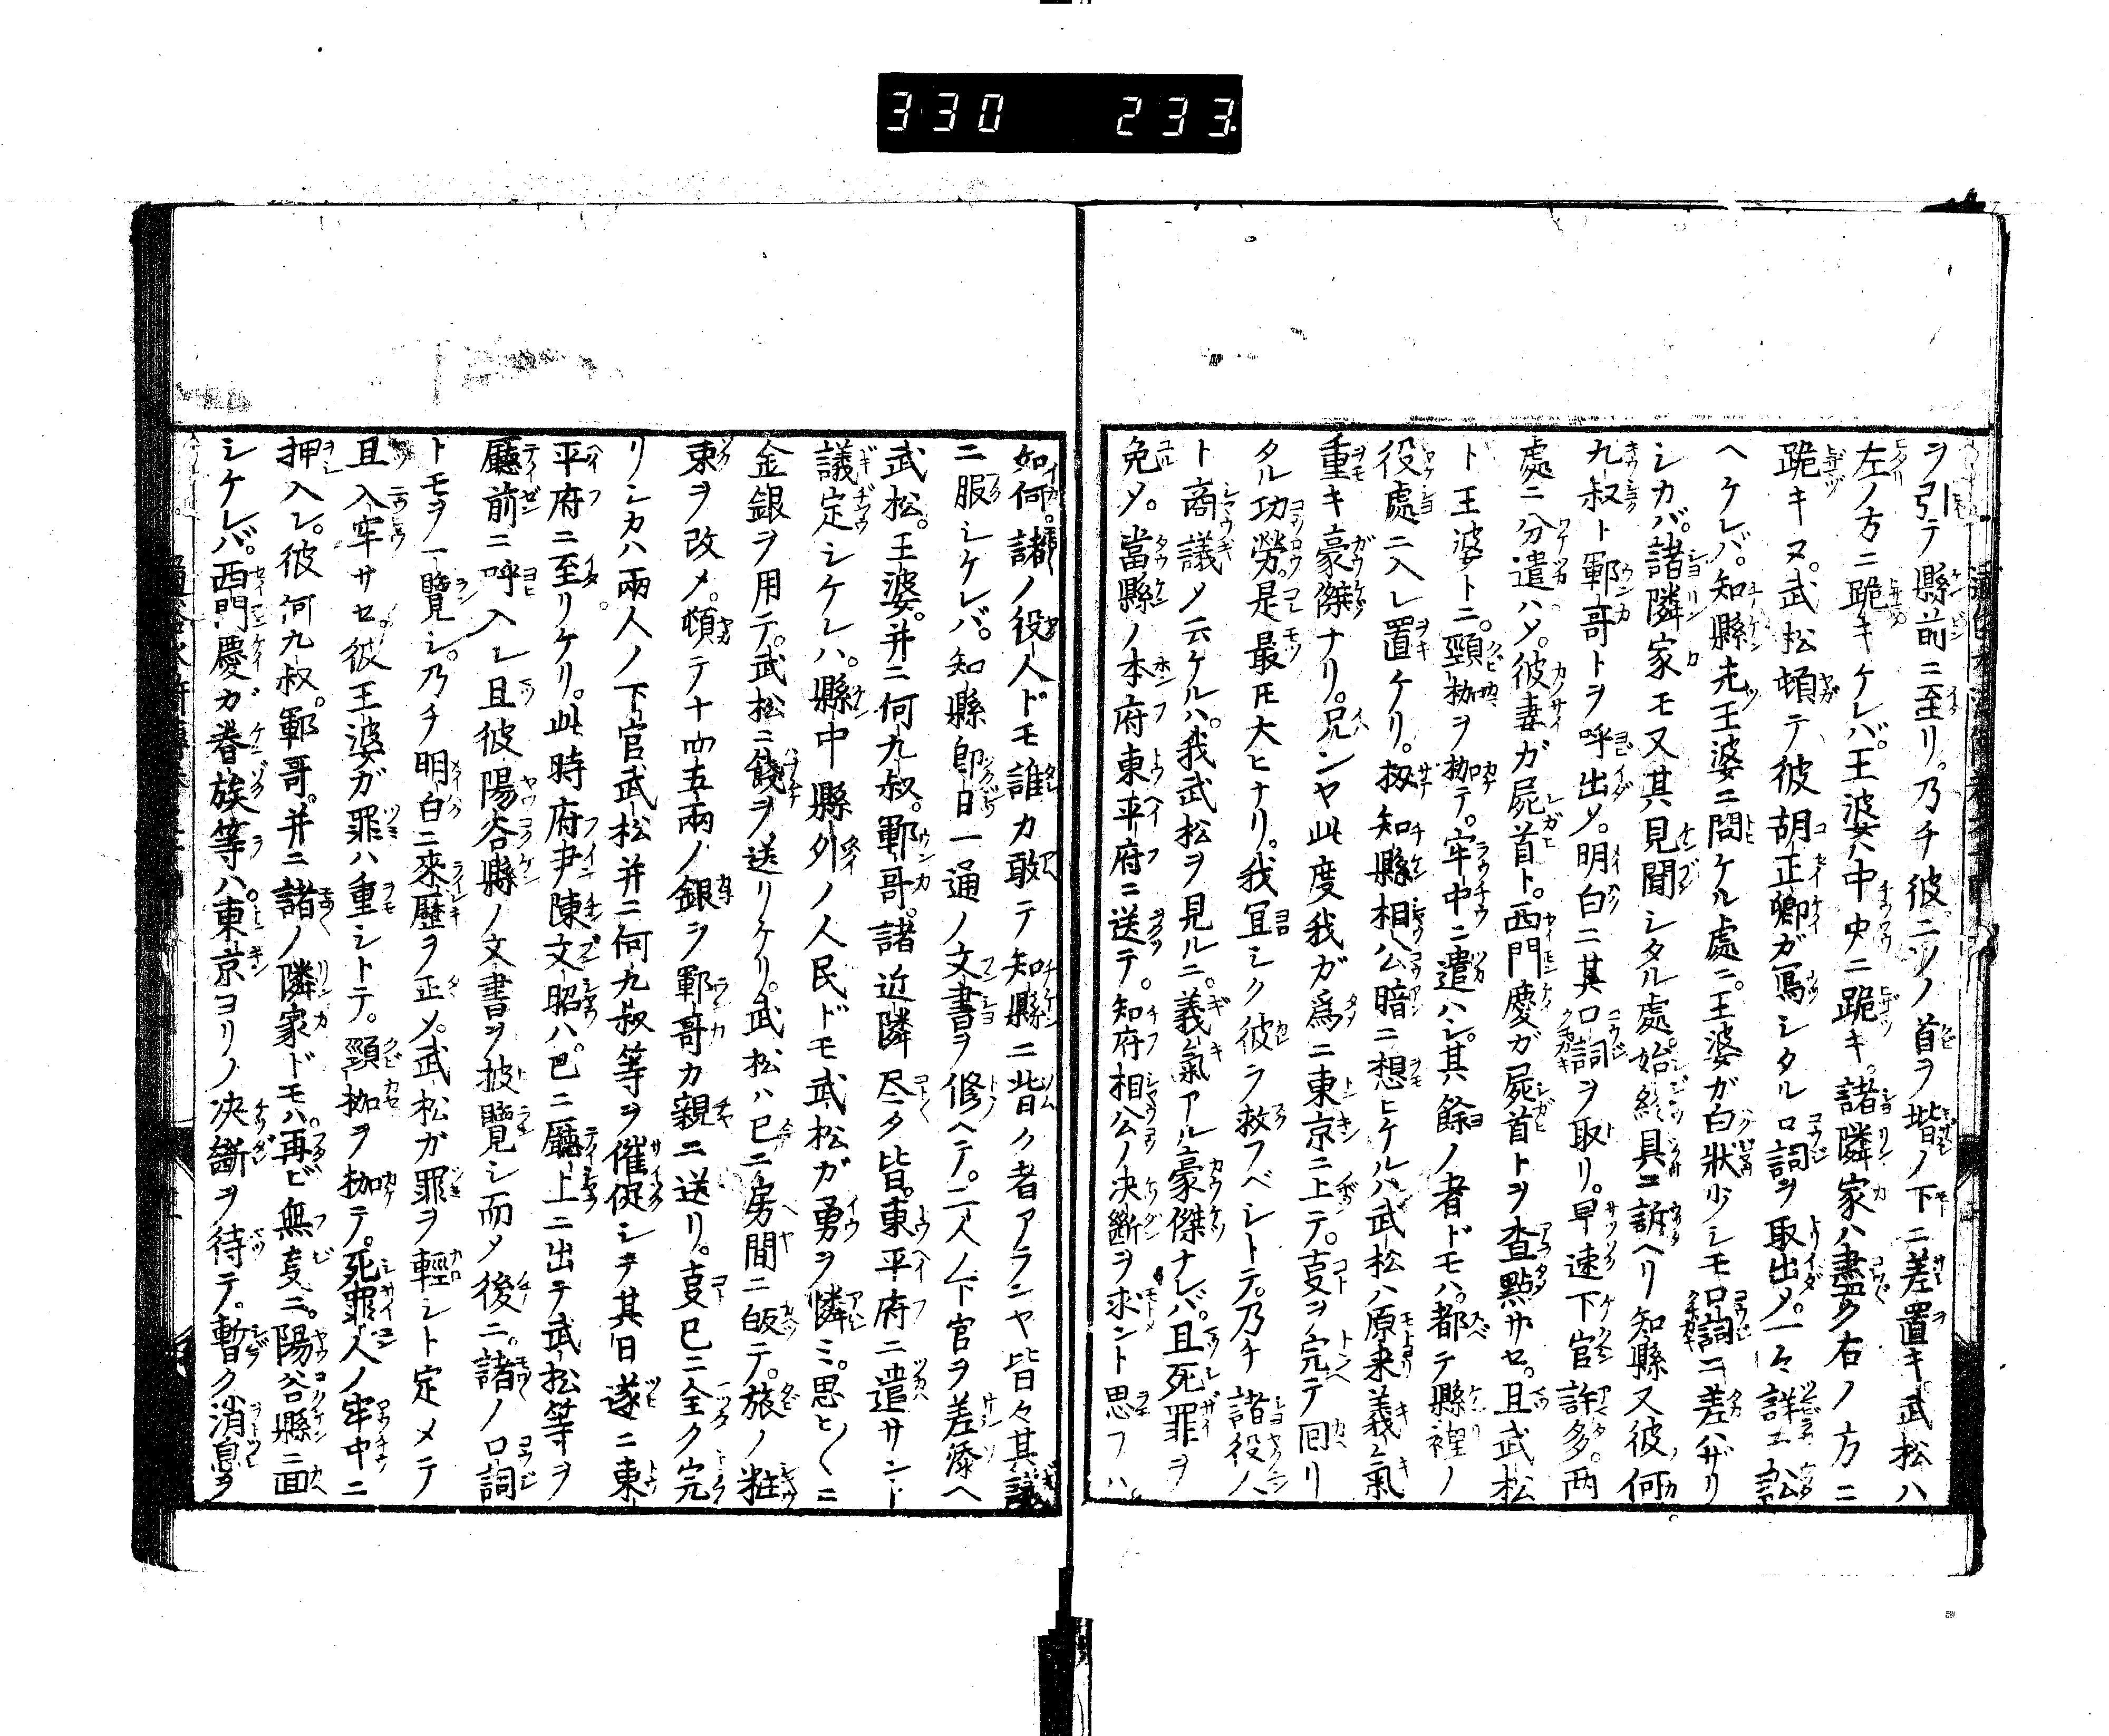 330 233
ヲ引テ縣前ニ至リ。乃チ彼二ツノ首ヲ堦ノ下ニ差置キ武松ハ
左ノ方ニ跪キケレバ。王婆ハ中央ニ跪キ。諸隣家ハ盡ク右ノ方ニ
跪キヌ。武松頓テ彼胡正卿ガ寫シタル口詞ヲ取出メ。一々詳ニ訟
ヘケレバ。知縣先王婆ニ問ケル處ニ。王婆ガ白狀少シモ口詞ニ差ハザリ
シカバ。諸隣家モ又其見聞シタル處。始終具ニ訴ヘリ知縣又彼何
九叔ト鄆哥トヲ呼出メ。明白ニ其口詞ヲ取リ。早速下官許多。两
處ニ分遣ハメ。彼妻ガ屍首ト。西門慶ガ屍首トヲ査點サセ。且武松
ト王婆トニ。頸枷ヲ枷テ。牢中ニ遣ハシ。其餘ノ者ドモハ。都テ縣裡ノ
役處ニ入レ置ケリ。扨知縣相公暗ニ想ヒケルハ武松ハ原来義氣
重キ豪傑ナリ。况ンヤ此度我ガ爲ニ東京ニ上テ。叓ヲ完テ囘リ
タル功勞。是最モ大ヒナリ。我冝シク彼ヲ救フベシトテ。乃チ諸役人
ト商議メ云ケルハ。我武松ヲ見ルニ。義氣アル豪傑ナレバ。且死罪ヲ
免メ。當縣ノ本府東平府ニ送テ。知府相公ノ决斷ヲ求ント思フハ。
如何。諸ノ役人ドモ誰カ敢テ知縣ニ背ク者アランヤ皆々其議
ニ服シケレバ。知縣卽日一通ノ文書ヲ修ヘテ。二人ノ下官ヲ差添ヘ
武松。王婆。并ニ何九叔。鄆哥。諸近隣尽ク皆。東平府ニ遣サント
議定シケレハ。縣中縣外ノ人民ドモ武松ガ勇ヲ憐ミ。思ヒ〱ニ
金銀ヲ用テ。武松ニ餞ヲ送リケリ。武松ハ已ニ房間ニ皈テ。旅ノ粧
束ヲ改メ。頓テ十四五兩ノ銀ヲ鄆哥カ親ニ送リ。叓已ニ全ク完
リシカハ兩人ノ下官武松并ニ何九叔等ヲ催促シキ其日遂ニ東
平府ニ至リケリ。此時府尹陳文昭ハ。已ニ廳上ニ出テ武松等ヲ
廳前ニ呼入レ且彼陽谷縣ノ文書ヲ披覽シ而メ後ニ。諸ノ口詞
トモヲ一覽シ。乃チ明白ニ來歷ヲ正メ。武松ガ罪ヲ輕シト定メテ
且入牢サセ。彼王婆ガ罪ハ重シトテ。頸枷ヲ枷テ。死罪人ノ牢中ニ
押入レ。彼何九叔。鄆哥。并ニ諸ノ隣家ドモハ。再ビ無叓ニ。陽谷縣ニ囬
シケレバ。西門慶ガ眷族等ハ。東京ヨリノ决斷ヲ待テ。暫ク消息ヲ